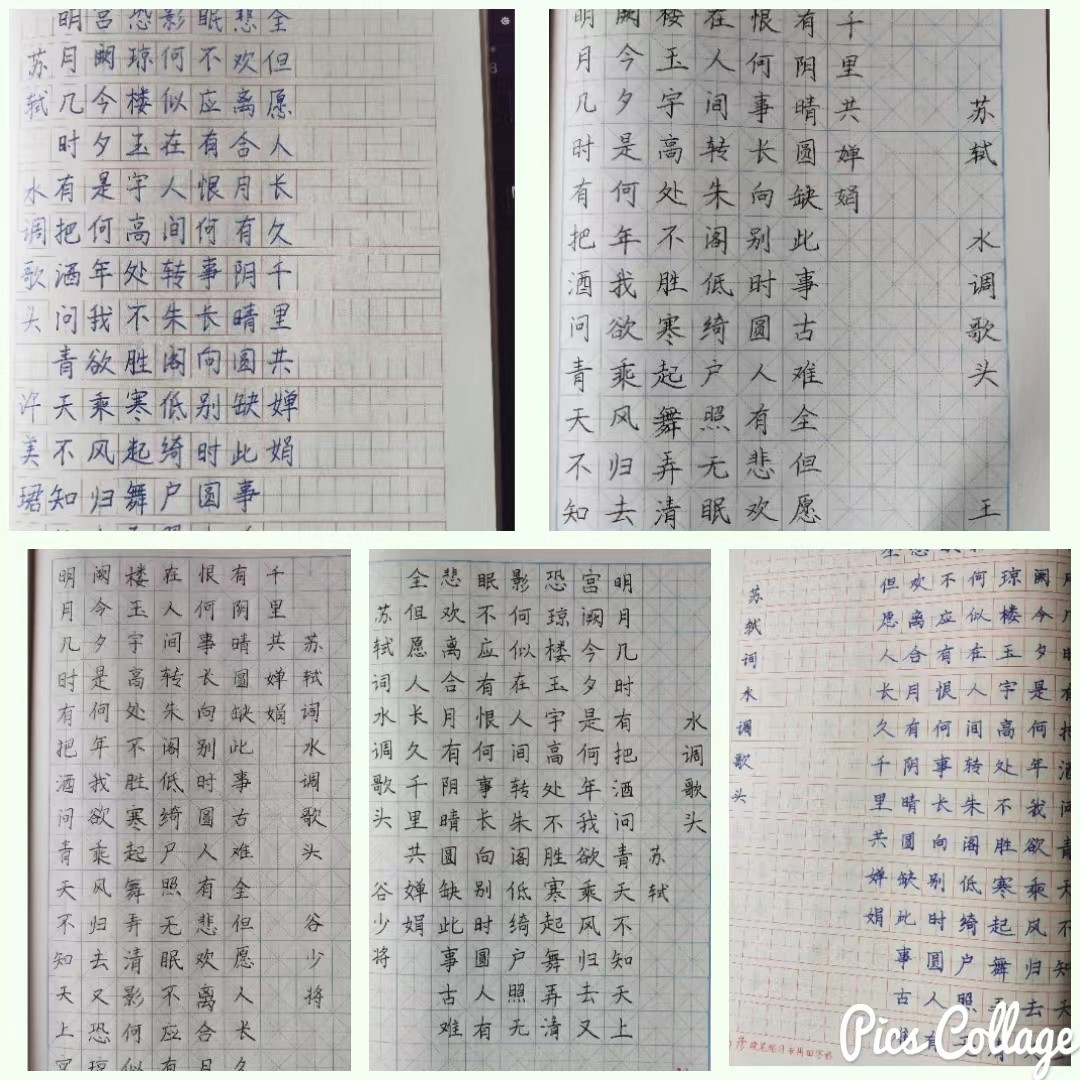 苏轼 水调歌头 许美珺
明月几时有把酒问青天不知
宫阙今夕是何年我欲乘风归
恐琼楼玉宇高处不胜寒起舞
影何似在人间转朱阁低绮户
眠不应有恨何事长向别时圆
悲欢离合月有阴晴圆缺此事
全但愿人长久千里共婵娟
明月几时有把酒问青天不知
阙今夕是何年我欲乘风归去
楼玉宇高处不胜寒起舞弄清
在人间转朱阁低绮户照无眠
恨何事长向别时圆人有悲欢
有阴晴圆缺此事古难全但愿
千里共婵娟
苏轼 水调歌头 王
明月几时有把酒问青天不知天上宫
阙今夕是何年我欲乘风归去又恐琼
楼玉宇高处不胜寒起舞弄清影何似
在人间转朱阁低绮户照无眠不应有
恨何事长向别时圆人有悲欢离合月
有阴晴圆缺此事古难全但愿人长久
千里共婵娟
苏轼词 水调歌头 谷少将
水调歌头
苏轼
明月几时有把酒问青天不知天上
宫阙今夕是何年我欲乘风归去又
恐琼楼玉宇高处不胜寒起舞弄清
影何似在人间转朱阁低绮户照无
眠不应有恨何事长向别时圆人有
悲欢离合月有阴晴圆缺此事古难
全但愿人长久千里共婵娟
苏轼词水调歌头 谷少将
月几时有把酒问青天不知天
阙今夕是何年我欲乘风归去
琼楼玉宇高处不胜寒起舞弄
何似在人间转朱阁低绮户照无
不应有恨何事长向别时圆人有
欢离合月有阴晴圆缺此事古难
但愿人长久千里共婵娟
苏轼词水调歌头
Pics Collage